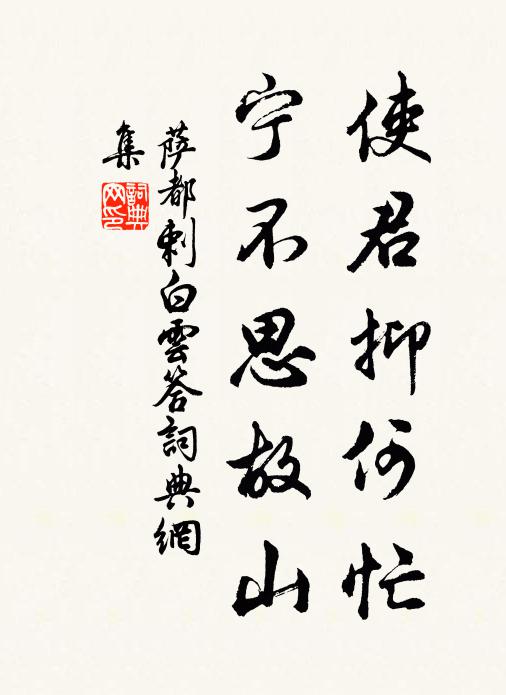 使君抑何忙
宁不思故山
萨都剌白雲答詞典網
集
詞典網印